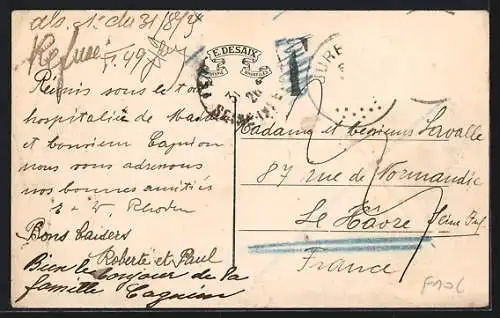 als. 1° du 31/8/
Refusé
E. DESAIX
T
31
26
Réunis sous le toit
hospitalier de
et Monsieur Cagnion
nous vous adressons
nos bonnes amitiés
Bons baisers
Roberte et Paul
Bien le bonjour de la
famille Cagnion
Madame et Messieurs Lavalle
87 rue de Normandie
Le Havre Seine Inf.
France